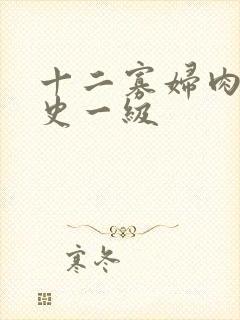 十二寡婦肉
史一級
寒冬